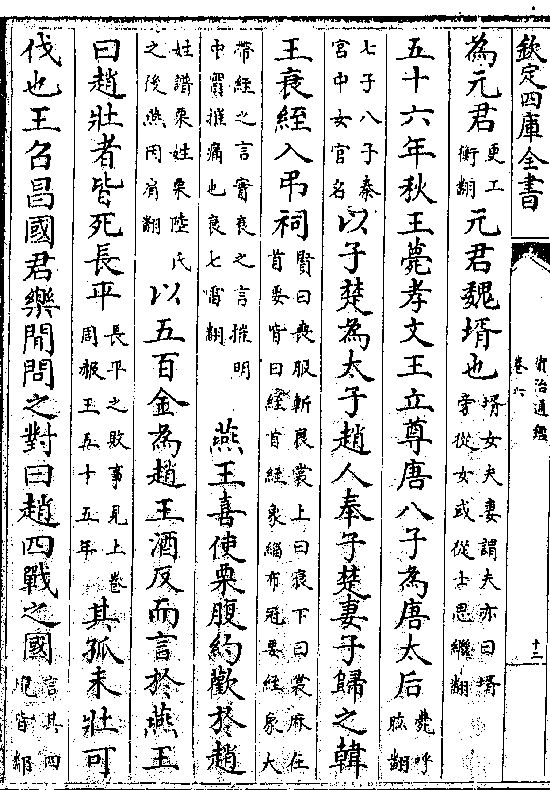 欽定四庫全書
資治通鑑
卷六
十三
為元君更工衡翻元君魏壻也壻女夫妻謂夫亦曰壻旁從女或從士思繼翻
五十六年秋王薨孝文王立尊唐八子為唐太后薨呼肱翻
七子八子秦宫中女官名以子楚為太子趙人奉子楚妻子歸之韓
王衰絰入弔祠賢曰喪服斬衰裳上曰衰下曰裳麻在首要皆曰絰首絰象緇布冠要絰象大
帶絰之言實衰之言摧明中實摧痛也衰七雷翻燕王喜使栗腹約歡於趙
姓譜栗姓栗陸氏之後燕因肩翻以五百金為趙王酒反而言於燕王
曰趙壯者皆死長平長平之敗事見上卷周赧王五十五年其孤未壯可
伐也王召昌國君樂閒問之對曰趙四戰之國言其四皆鄰